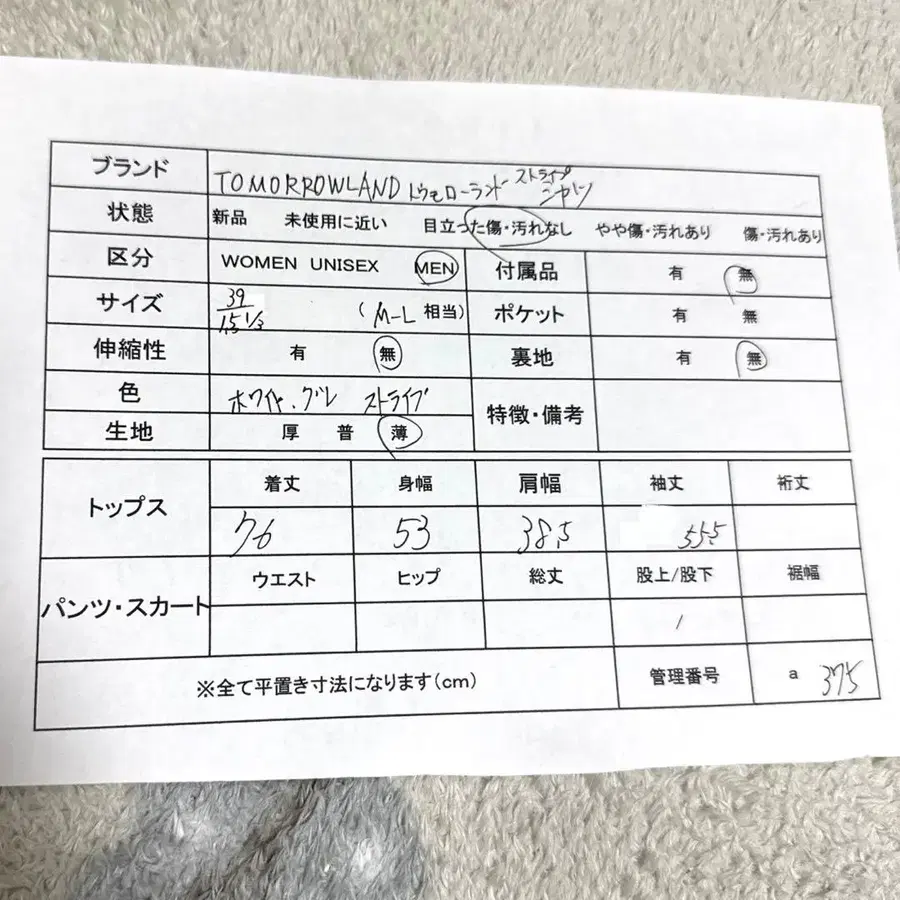 ブランド TOMORROWLAND トゥモローランド ストライプ シャツ
状態 新品 未使用に近い 目立った傷・汚れなし やや傷・汚れあり 傷・汚れあり
区分 WOMEN UNISEX MEN 付属品 有 無
サイズ 39 15 1/3 (M-L 相当) ポケット 有 無
伸縮性 有 無 裏地 有 無
色 ホワイト.グレ ストライプ 特徴・備考
生地 厚 普 薄
トップス 着丈 身幅 肩幅 袖丈 裄丈
76 53 38.5 55.5
パンツ・スカート ウエスト ヒップ 総丈 股上/股下 裾幅
/
※全て平置き寸法になります(cm) 管理番号 a 375